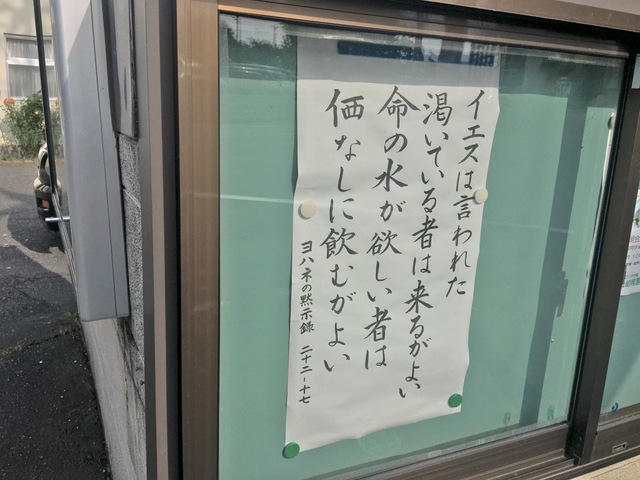 イエスは言われた
渇いている者は来るがよい
命の水が欲しい者は
価なしに飲むがよい
ヨハネの黙示録 二十二-十七